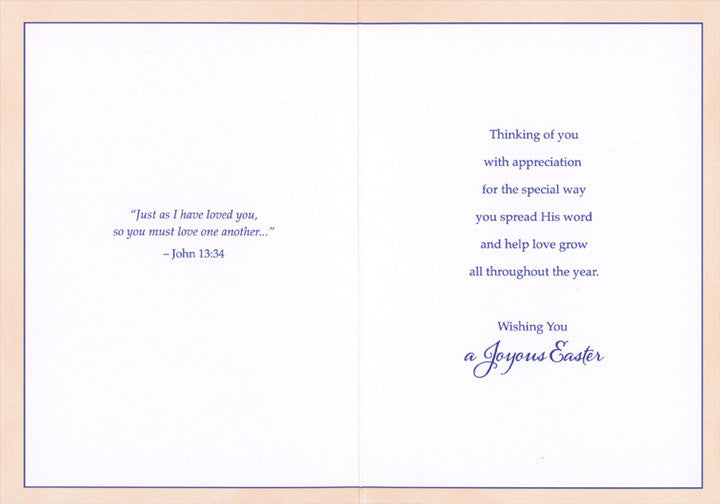 “Just as I have loved you,
so you must love one another...”
– John 13:34
Thinking of you
with appreciation
for the special way
you spread His word
and help love grow
all throughout the year.
Wishing You
a Joyous Easter